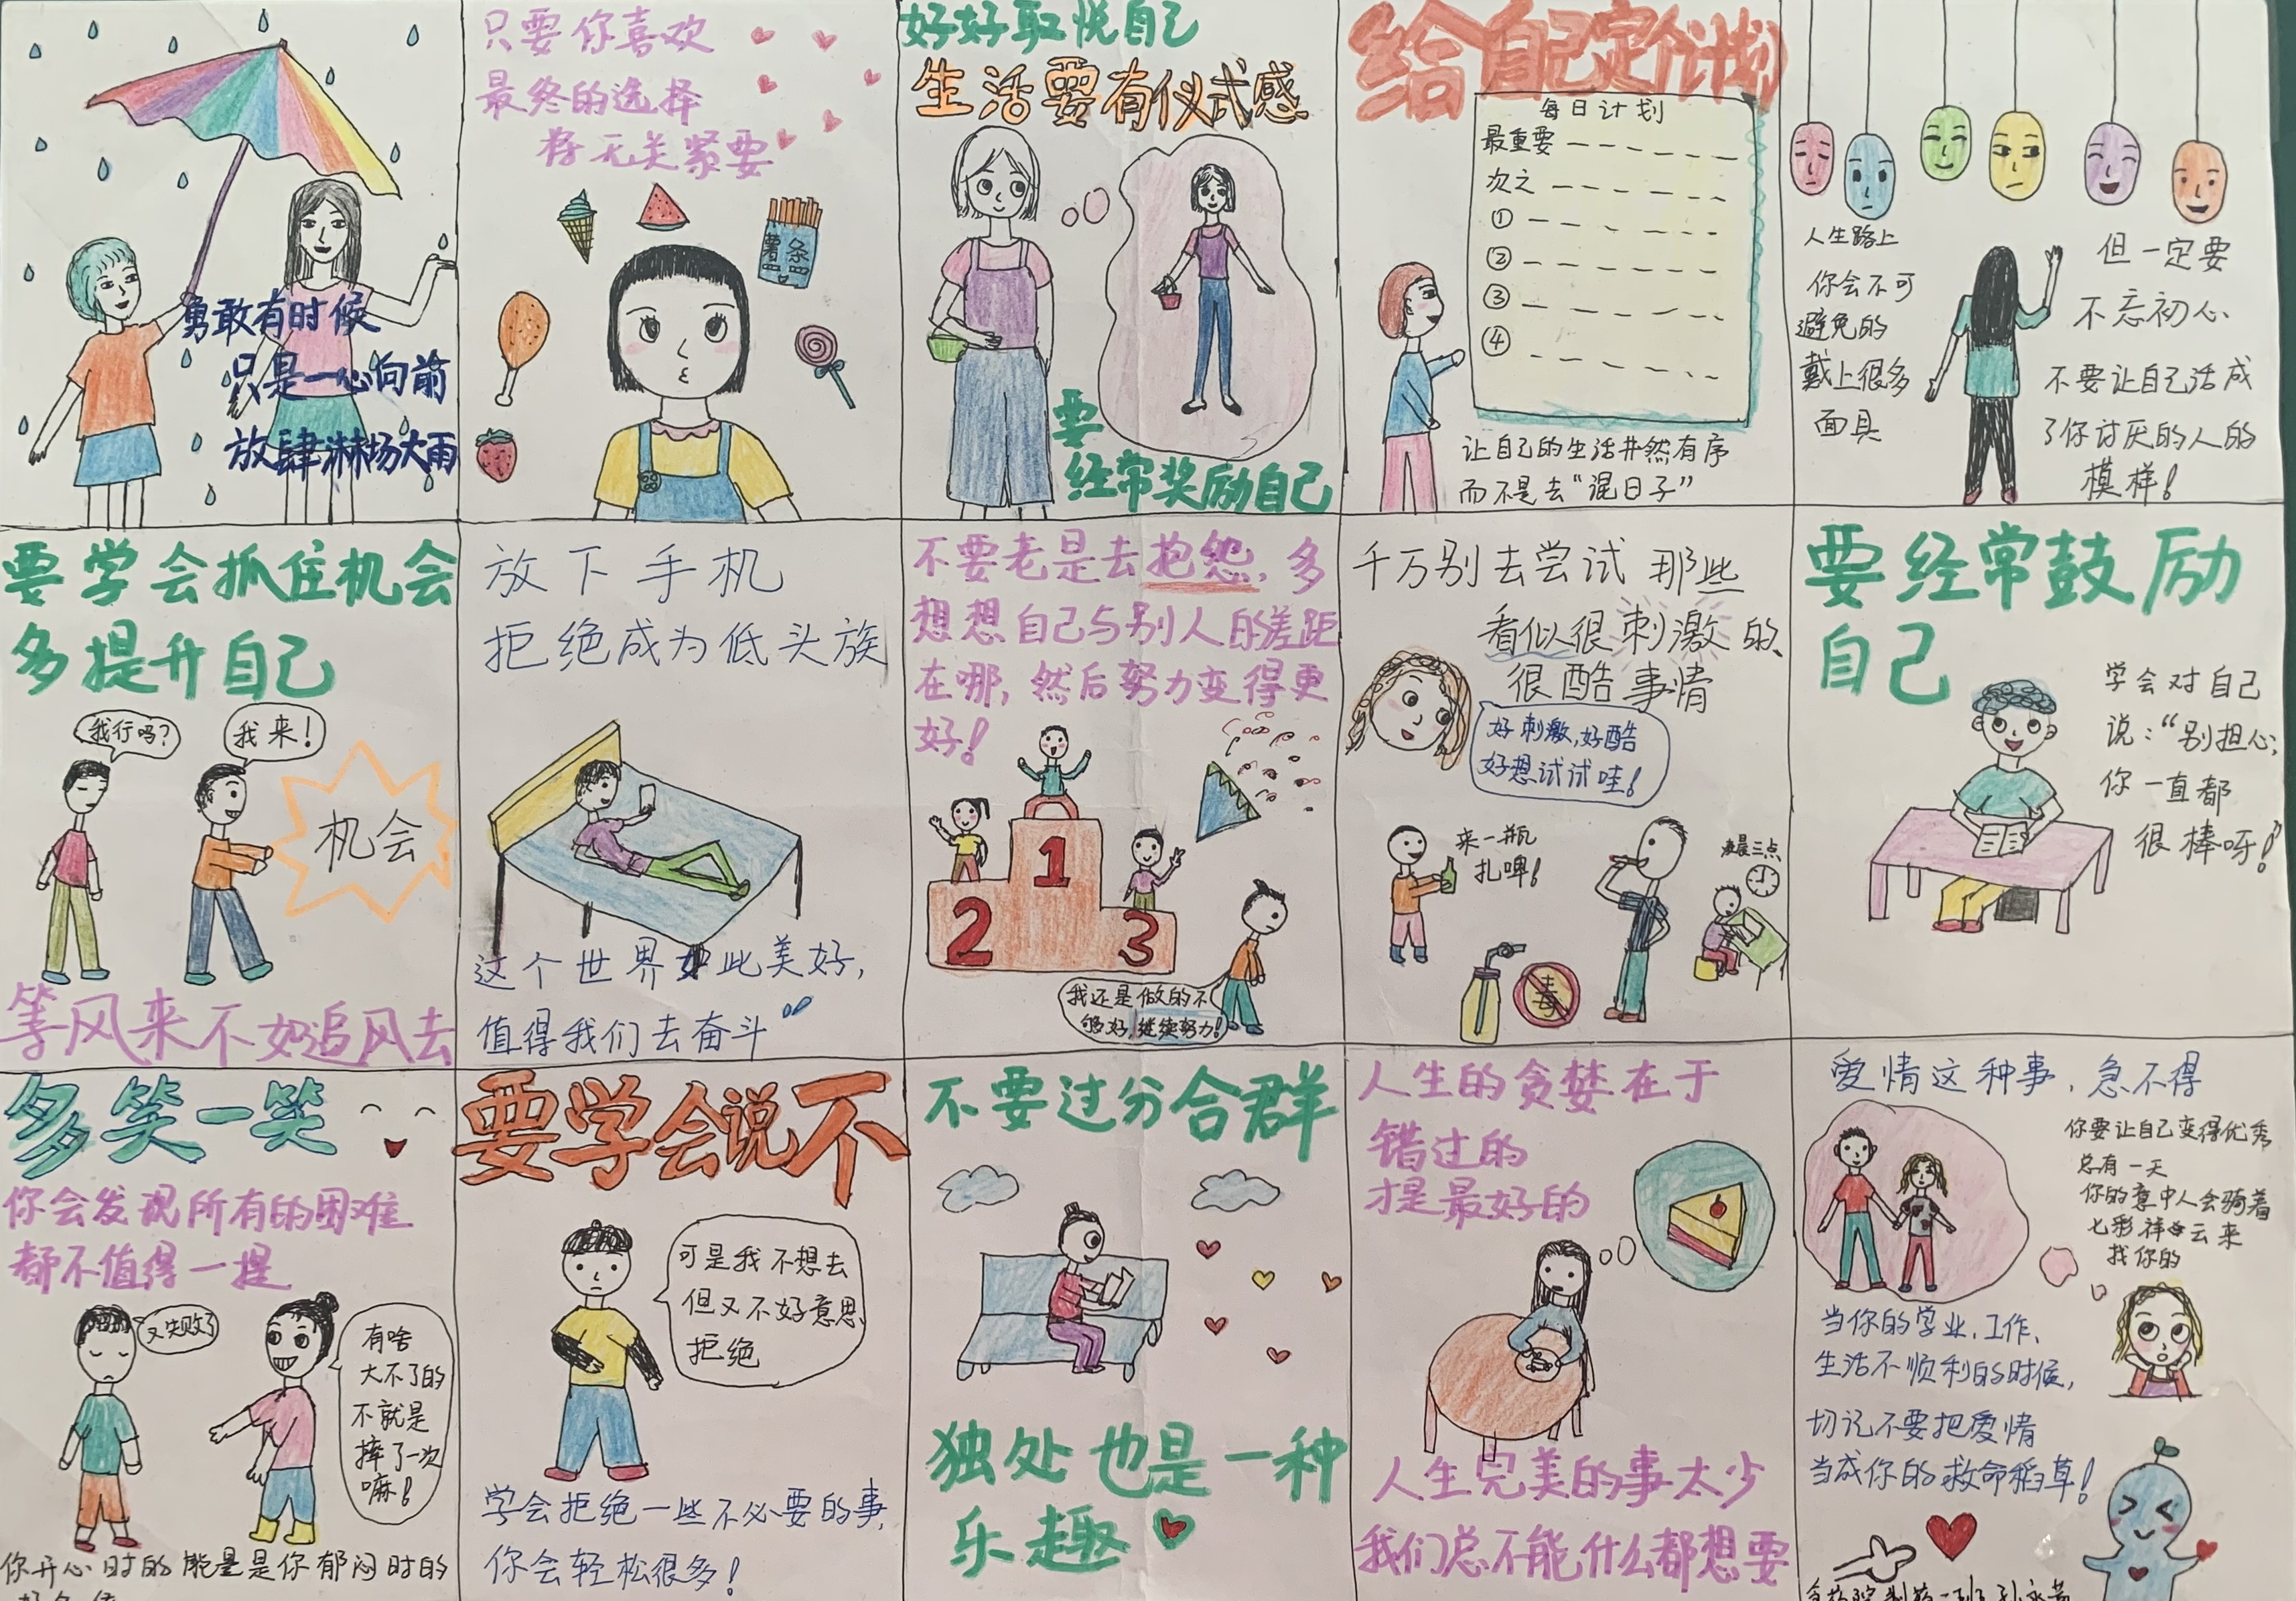 勇敢有时候
只是一心向前
放肆淋场大雨
只要你喜欢
最终的选择
将无关紧要
薯条
好好取悦自己
生活要有仪式感
要
经常奖励自己
给自己定个计划
每日计划
最重要
次之
①
②
③
④
让自己的生活井然有序
而不是去“混日子”
人生路上
你会不可
避免的
戴上很多
面具
但一定要
不忘初心
不要让自己活成
了你讨厌的人的
模样！
要学会抓住机会
多提升自己
我行吗？
我来！
机会
等风来不如追风去
放下手机
拒绝成为低头族
这个世界如此美好，
值得我们去奋斗
不要老是去抱怨，多
想想自己与别人的差距
在哪，然后努力变得更
好！
1
2
3
我还是做的不
够好，继续努力！
千万别去尝试那些
看似很刺激的、
很酷事情
好刺激，好酷
好想试试哇！
来一瓶
扎啤！
凌晨三点
毒
要经常鼓励
自己
学会对自己
说：“别担心，
你一直都
很棒呀！”
多笑一笑
你会发现所有的困难
都不值得一提
又失败了
有啥
大不了的
不就是
摔了一次
嘛！
你开心时的能量是你郁闷时的
要学会说不
可是我不想去
但又不好意思
拒绝
学会拒绝一些不必要的事，
你会轻松很多！
不要过分合群
独处也是一种
乐趣
人生的贪婪在于
错过的
才是最好的
人生完美的事太少
我们总不能什么都想要
爱情这种事，急不得
你要让自己变得优秀
总有一天
你的意中人会骑着
七彩祥云来
找你的
当你的学业、工作、
生活不顺利的时候，
切记不要把爱情
当成你的救命稻草！